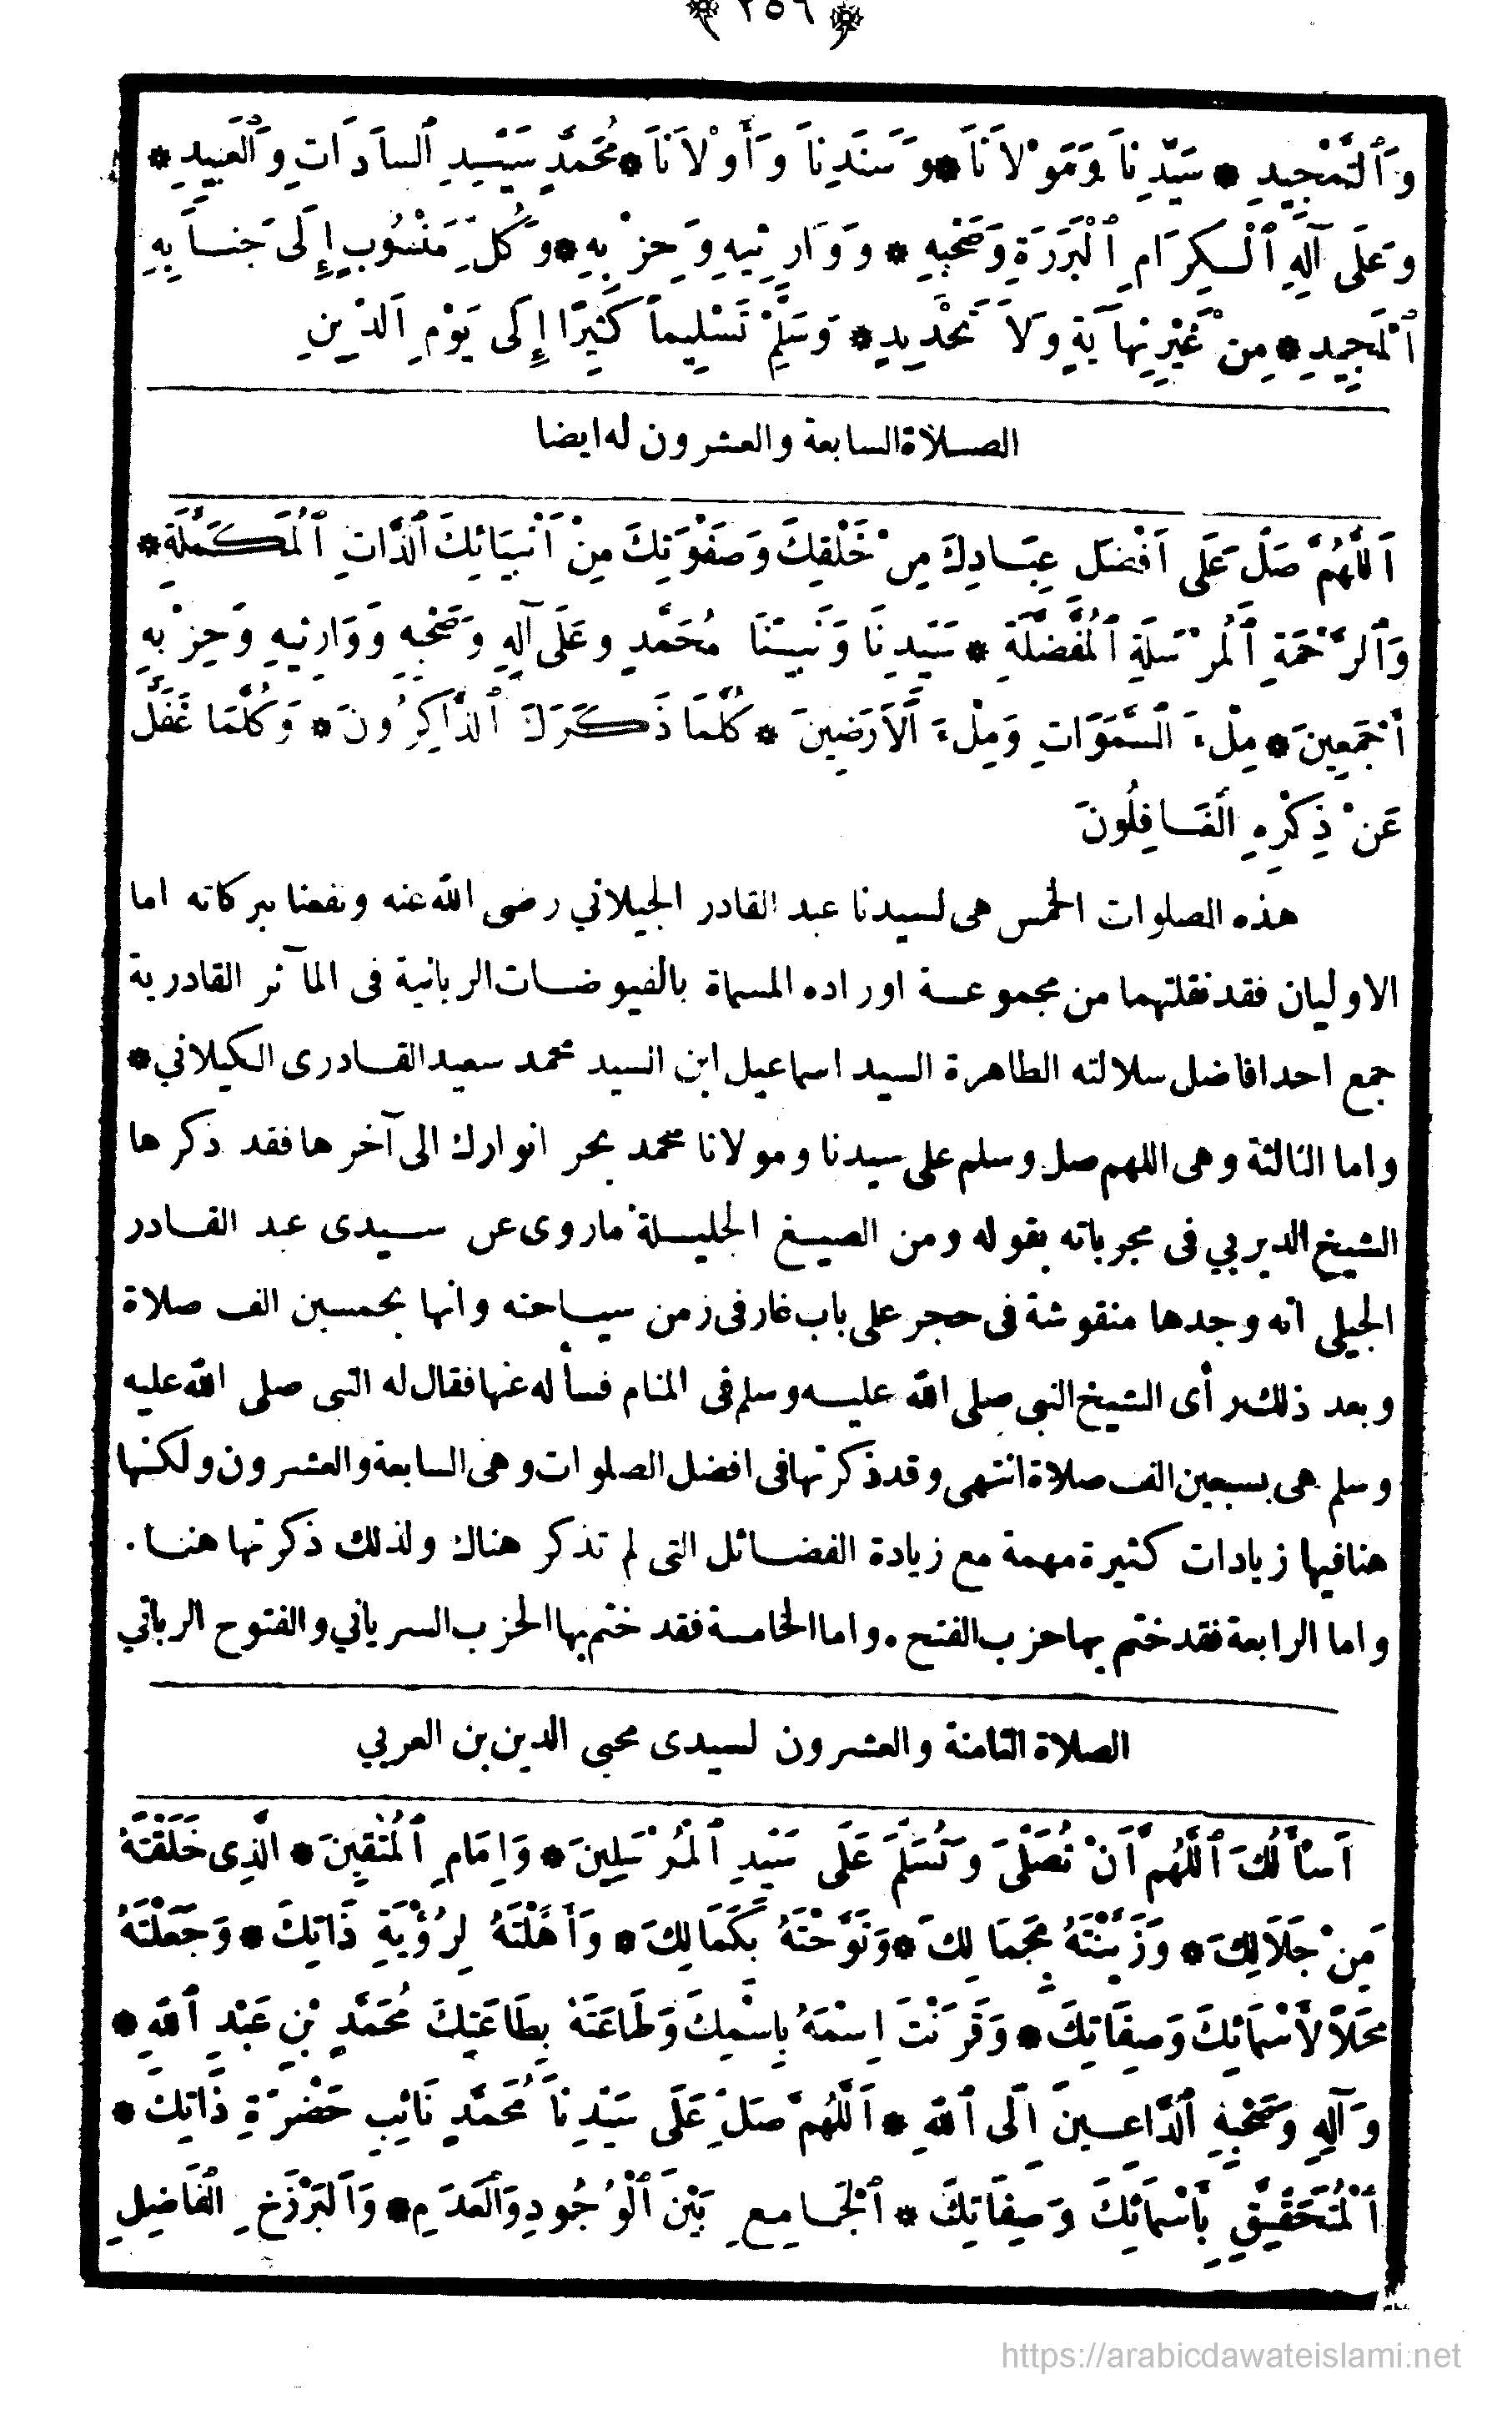 ﴿ ٢٥٦ ﴾
وَٱلتَّمْجِيدِ * سَيِّدِنَا وَمَوْلَانَا * وَسَنَدِنَا وَأَوْلَانَا * مُحَمَّدٍ سَيِّدِ ٱلسَّادَاتِ وَٱلْعَبِيدِ *
وَعَلَى آلِهِ ٱلْكِرَامِ ٱلْبَرَرَةِ وَصَحْبِهِ * وَوَارِثِيهِ وَحِزْبِهِ * وَكُلِّ مَنْسُوبٍ إِلَى جَنَابِهِ
ٱلْمَجِيدِ * مِنْ غَيْرِ نِهَايَةٍ وَلَا تَحْدِيدٍ * وَسَلِّمْ تَسْلِيماً كَثِيرًا إِلَى يَوْمِ ٱلدِّينِ
الصلاة السابعة والعشرون له ايضا
اَللّٰهُمَّ صَلِّ عَلَى اَفْضَلِ عِبَادِكَ مِنْ خَلْقِكَ وَصَفْوَتِكَ مِنْ اَنْبِيَائِكَ ٱلذَّاتِ ٱلْمُكَمَّلَةِ *
وَٱلرَّحْمَةِ ٱلْمُرْسَلَةِ ٱلْمُفَضَّلَةِ * سَيِّدِنَا وَنَبِيِّنَا مُحَمَّدٍ وعَلَى آلِهِ وَصَحْبِهِ وَوَارِثِيهِ وَحِزْبِهِ
أَجْمَعِينَ * مِلْءَ ٱلسَّمَوَاتِ وَمِلْءَ ٱلْاَرَضِينَ * كُلَّمَا ذَكَرَكَ ٱلذَّاكِرُونَ * وَكُلَّمَا غَفَلَ
عَنْ ذِكْرِهِ ٱلْغَافِلُونَ
هذه الصلوات الخمس هى لسيدنا عبد القادر الجيلاني رضى الله عنه ونفعنا ببركاته اما
الاوليان فقد نقلتهما من مجموعة اوراده المسماة بالفيوضات الربانية فى المآثر القادرية
جمع احد افاضل سلالته الطاهرة السيد اسماعيل ابن السيد محمد سعيد القادرى الكيلاني *
واما الثالثة وهى اللهم صل وسلم على سيدنا ومولانا محمد بحر انوارك الى آخرها فقد ذكرها
الشيخ الديربي فى مجرباته بقوله ومن الصيغ الجليلة ماروى عن سيدى عبد القادر
الجيلى انه وجدها منقوشة فى حجر على باب غار فى زمن سياحته وانها بخمسين الف صلاة
وبعد ذلك رأى الشيخ النبى صلى الله عليه وسلم فى المنام فسأله عنها فقال له النبى صلى الله عليه
وسلم هى بسبعين الف صلاة انتهى وقد ذكرتها فى افضل الصلوات وهى السابعة والعشرون ولكنها
هنا فيها زيادات كثيرة مهمة مع زيادة الفضائل التى لم تذكر هناك ولذلك ذكرتها هنا .
واما الرابعة فقد ختم بها حزب الفتح . واما الخامسة فقد ختم بها الحزب السرياني والفتوح الرباني
الصلاة الثامنة والعشرون لسيدى محيى الدين بن العربي
اَسْأَلُكَ ٱللّٰهُمَّ اَنْ تُصَلِّيَ وَتُسَلِّمَ عَلَى سَيِّدِ ٱلْمُرْسَلِينَ * وَاِمَامِ ٱلْمُتَّقِينَ * الَّذِى خَلَقْتَهُ
مِنْ جَلَالِكَ * وَزَيَّنْتَهُ بِجَمَالِكَ * وَتَوَّجْتَهُ بِكَمَالِكَ * وَأَهَّلْتَهُ لِرُؤْيَةِ ذَاتِكَ * وَجَعَلْتَهُ
مَحَلّاً لِأَسْمَائِكَ وَصِفَاتِكَ * وَقَرَنْتَ اِسْمَهُ بِاسْمِكَ وَطَاعَتَهُ بِطَاعَتِكَ مُحَمَّدِ بْنِ عَبْدِ ٱللهِ *
وَآلِهِ وَصَحْبِهِ ٱلدَّاعِينَ اِلَى ٱللهِ * اَللّٰهُمَّ صَلِّ عَلَى سَيِّدِنَا مُحَمَّدٍ نَائِبِ حَضْرَةِ ذَاتِكَ *
ٱلْمُتَحَقِّقِ بِأَسْمَائِكَ وَصِفَاتِكَ * ٱلْجَامِعِ بَيْنَ ٱلْوُجُودِ وَٱلْعَدَمِ * وَٱلْبَرْزَخِ ٱلْفَاضِلِ
https://arabicdawateislami.net